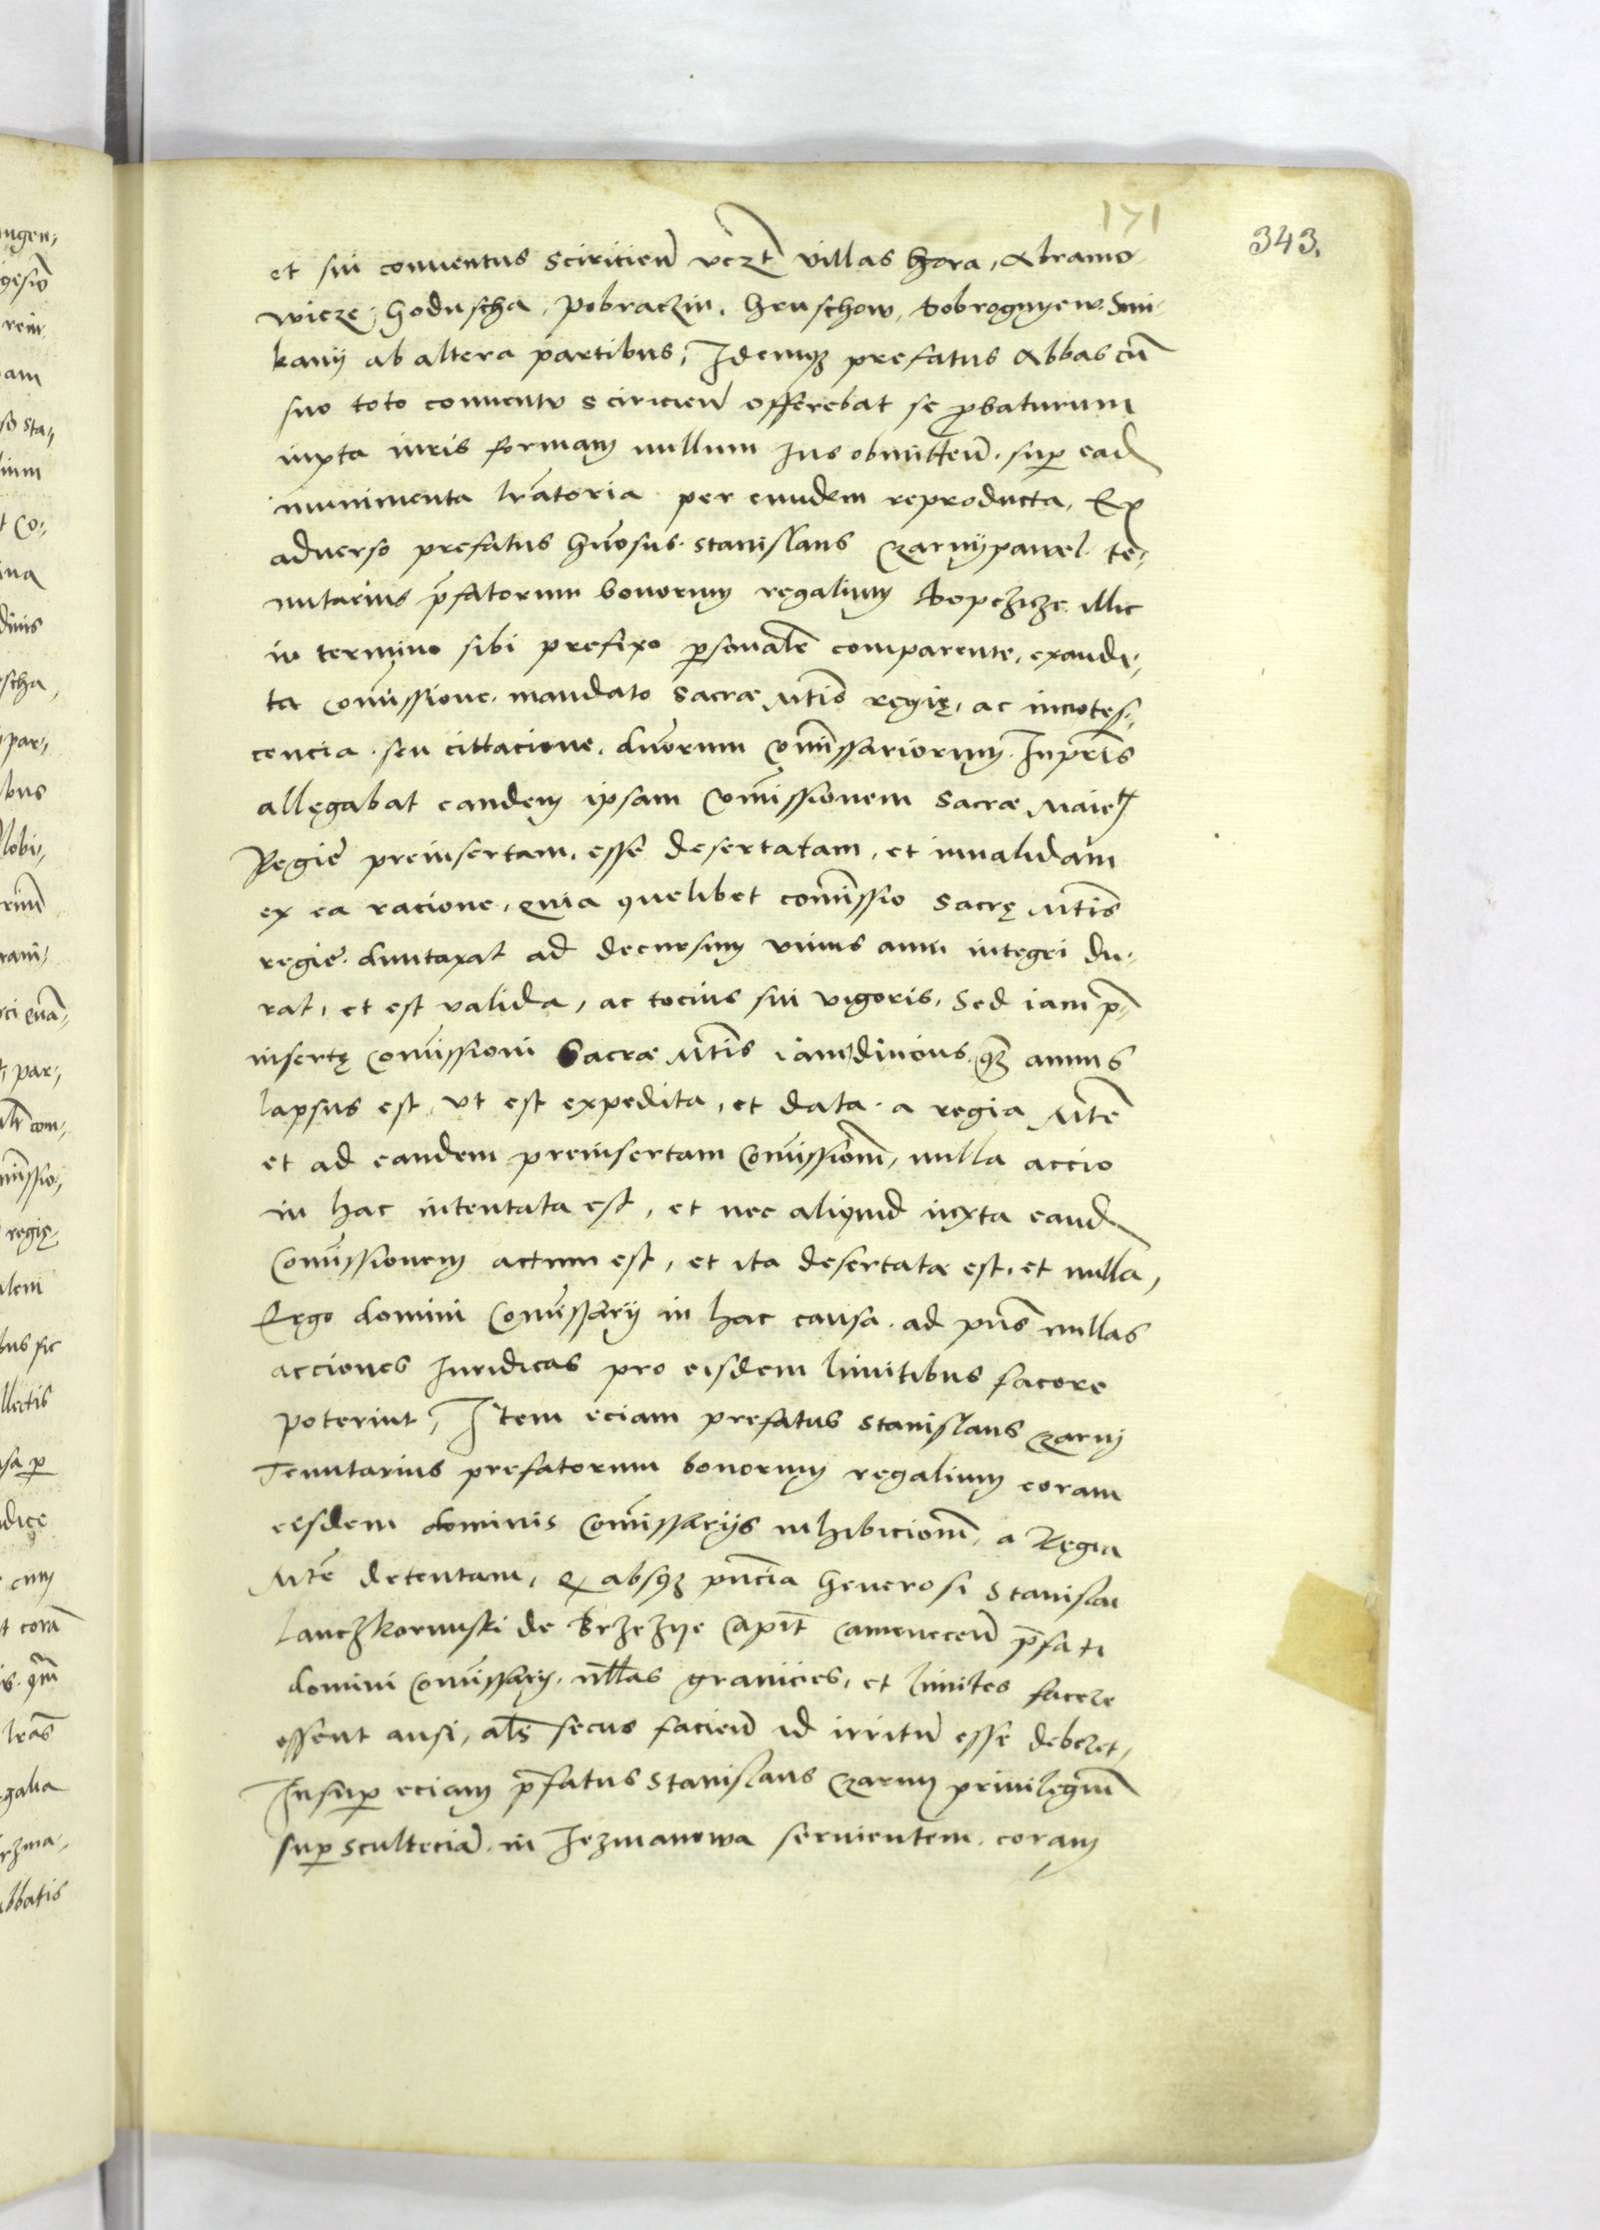 171
343.
et sui conuentus Sciricien̄ vczt̄ villas Gora, Abramo
wicze, Goduscha, Pobraczin, Gruschow, Dobrognyew. Smi-
kanij ab altera partibus, Idemqȝ prefatus Abbas cū
suo toto conuentu Sciricien̄ offerebat se ꝓbaturum
iuxta iuris formam nullum Ius obmitten̄. suꝑ ead
munimenta lr̄atoria per eundem reproducta, Ex
aduerso prefatus Gn̄osus Stanislaus Czarnÿ pawel te-
nutarius p̄fatorum bonorum regalium illic
in termino sibi prefixo ꝑsonalr̄ comparente, exaudi-
ta Com̄issione mandato Sacræ Mt̄is regię, ac innotes-
cencia seu cittacione, duorum Com̄issariorum. Inprīs
allegabat eandem ipsam Com̄issionem Sacræ Maiet̄
Regie preinsertam, esse desertatam, et inualidam
ex ea racione, quia quelibet com̄issio Sacrę Mt̄is
regie duntaxat ad decursum vnius anni integri du-
rat, et est valida, ac tocius sui vigoris, Sed iam p̄-
insertę Com̄issioni Sacræ Mt̄is iam diucius qȝ annus
lapsus est, vt est expedita, et data a regia Mt̄e
et ad eandem preinsertam Com̄issionē, nulla accio
in hac intentata est, et nec aliquid iuxta eand
Com̄issionem actum est, et ita desertata est, et nulla,
Ergo domini Com̄issarij in hac causa ad pn̄s nullas
acciones Iuridicas pro eisdem limitibus facere
poterint, Item eciam prefatus Stanislaus Czarnj
Tenutarius prefatorum bonorum regalium coram
eisdem dominis Com̄issarijs inhibicionē, a Regia
Mt̄e detentam, absqȝ pn̄cia Generosi Stanislai
Lanczkorunski de Brzezye Capit̄ Camenecen̄ p̄fati
domini Com̄issarij, nllas granicies, et limites facere
essent ausi, als̄ secus facien̄ id irritū esse deberet,
Insuꝑ eciam p̄fatus Stanislaus Czarnj priuilegiū
suꝑ Scultecia in Jezmanowa seruientem, coram